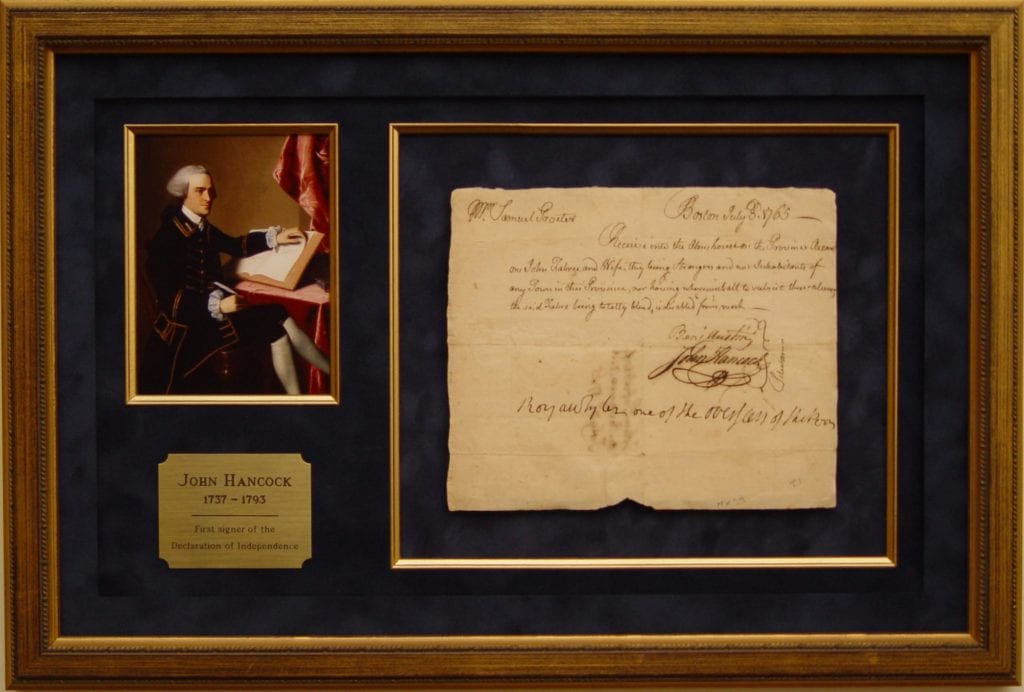 Mr. Samuel Proctor
Boston July 8. 1765
Receive into the Alms house on the Province Accou
on John Fabre and Wife, they being Strangers and not Inhabitants of
any Town in this Province, nor having wherewithall to
the said Fabre being totally blind, is disabled from work
Benj Austin
John Hancock
Royall Tyler one of the overseers of the Poor
JOHN HANCOCK
1737 – 1793
First signer of the
Declaration of Independence